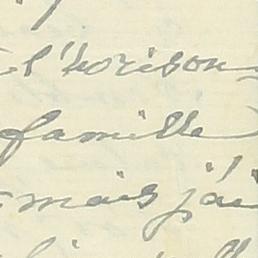 l'horison
famille
mais j'ai